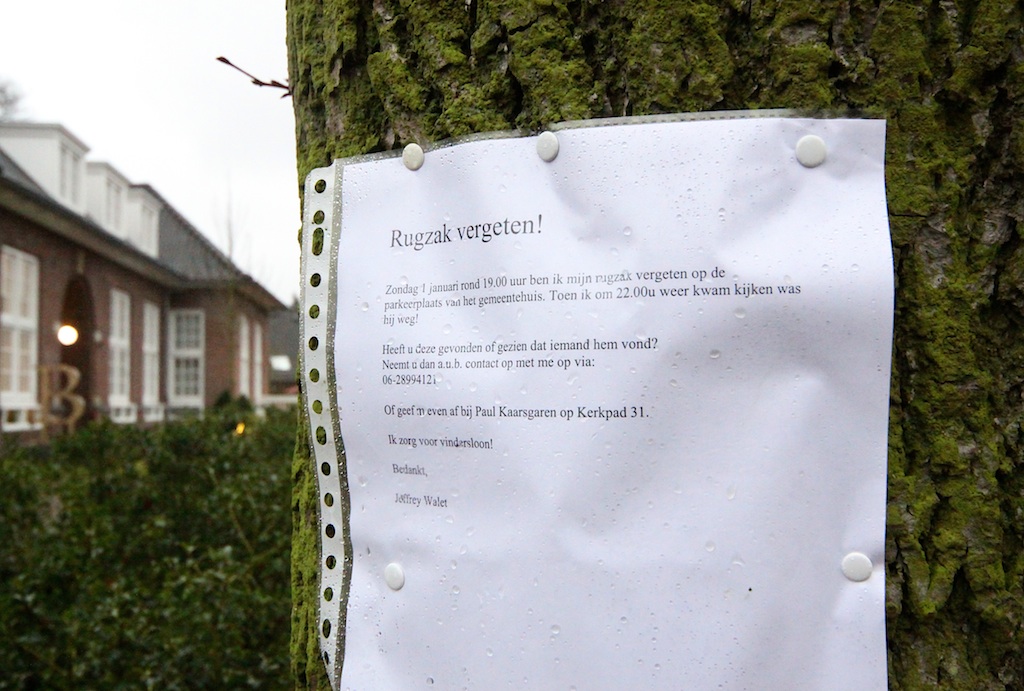 Rugzak vergeten!
Zondag 1 januari rond 19.00 uur ben ik mijn rugzak vergeten op de
parkeerplaats van het gemeentehuis. Toen ik om 22.00u weer kwam kijken was
hij weg!
Heeft u deze gevonden of gezien dat iemand hem vond?
Neemt u dan a.u.b. contact op met me op via:
06-28994121
Of geef m even af bij Paul Kaarsgaren op Kerkpad 31.
Ik zorg voor vindersloon!
Bedankt,
Joffrey Walet
B